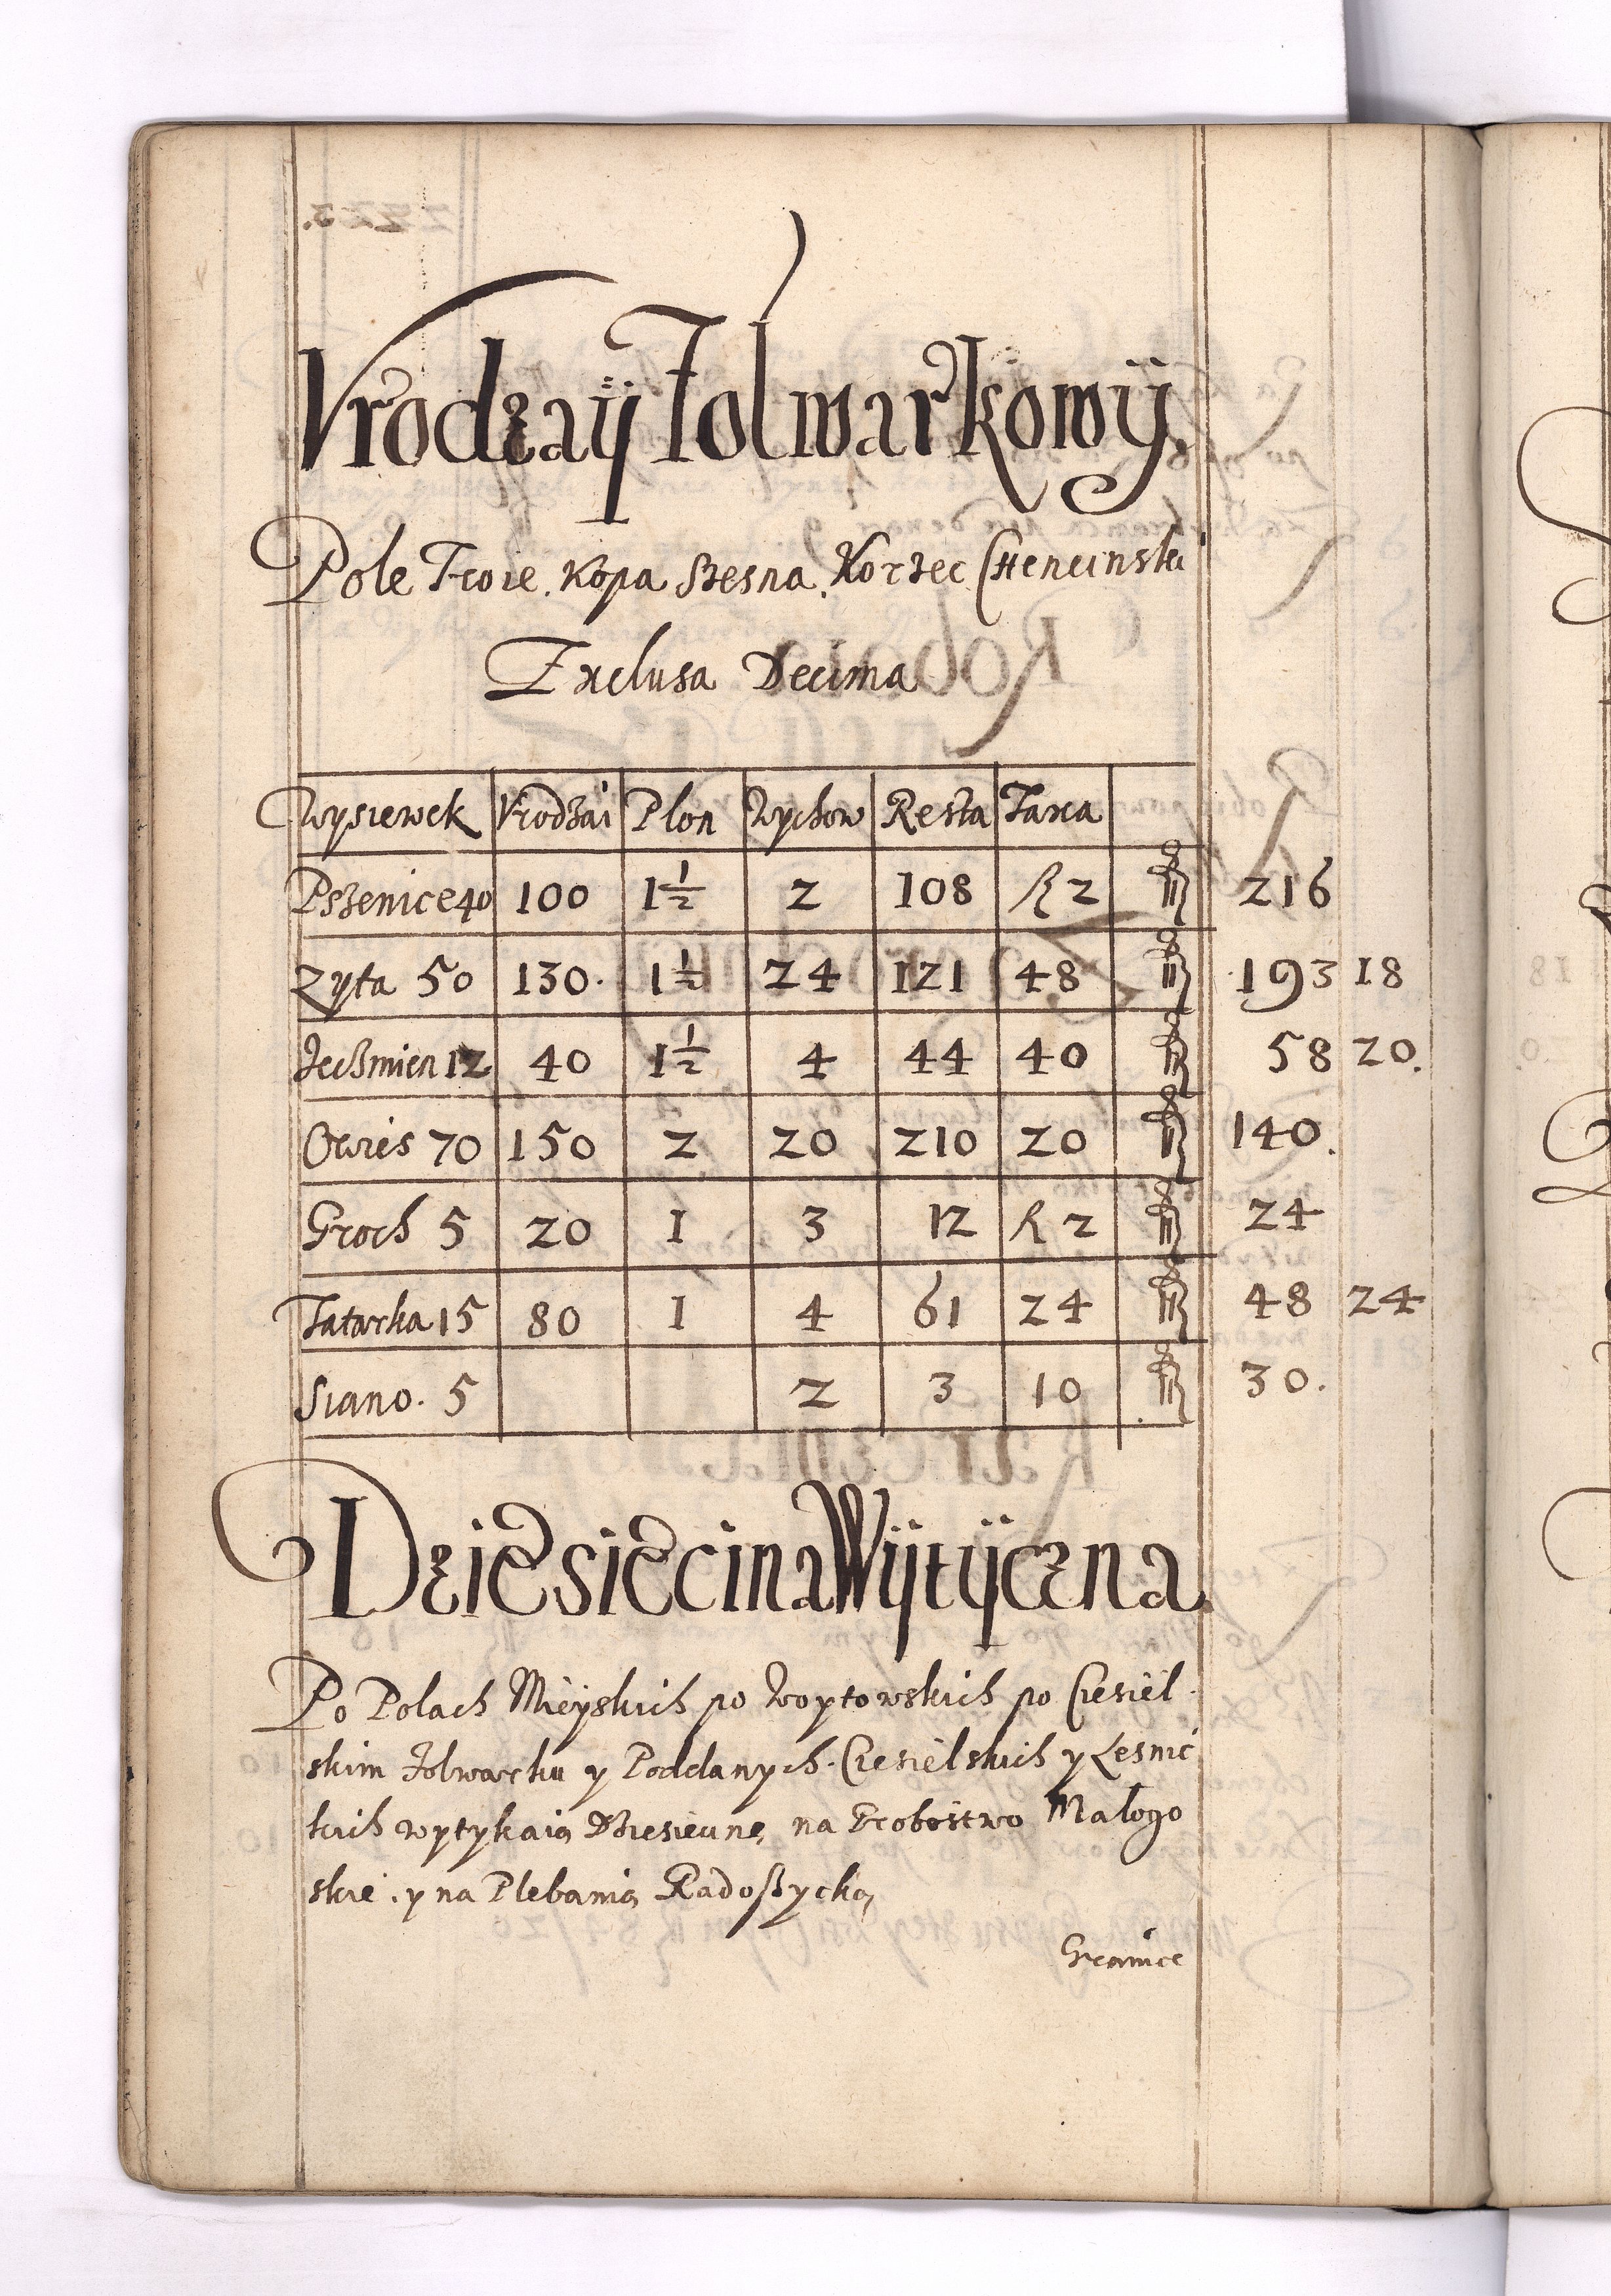 Vrodzaÿ Folwarkowÿ
Pole Troie. Kopa szesna. Korzec Chencinski
Exclusa Decima
Wysiewek Vrodzai Plon Wychow Resta Taxa
Pszenice 40 100 1 1/2 2 108 R 2 216
Zyta 50 130. 1 1/2 24 121 48 193 18
Jeczmien 12 40 1 1/2 4 44 40 58 20.
Owies 70 150 2 20 210 20 140.
Groch 5 20 1 3 12 R 2 24
Tatarka 15 80 1 4 61 24 48 24
Siano. 5 2 3 10 30.
Dzięsięcina Wÿtÿczna
Po Polach Mieyskich po Woytowskich po Ciesiel
skim Folwarku y Poddanych Ciesielskich y Lesnic
kich wytykaią Dziesięcinę na Probostwo Małogo
skie. y na Plebanią Radoszycką
Granice